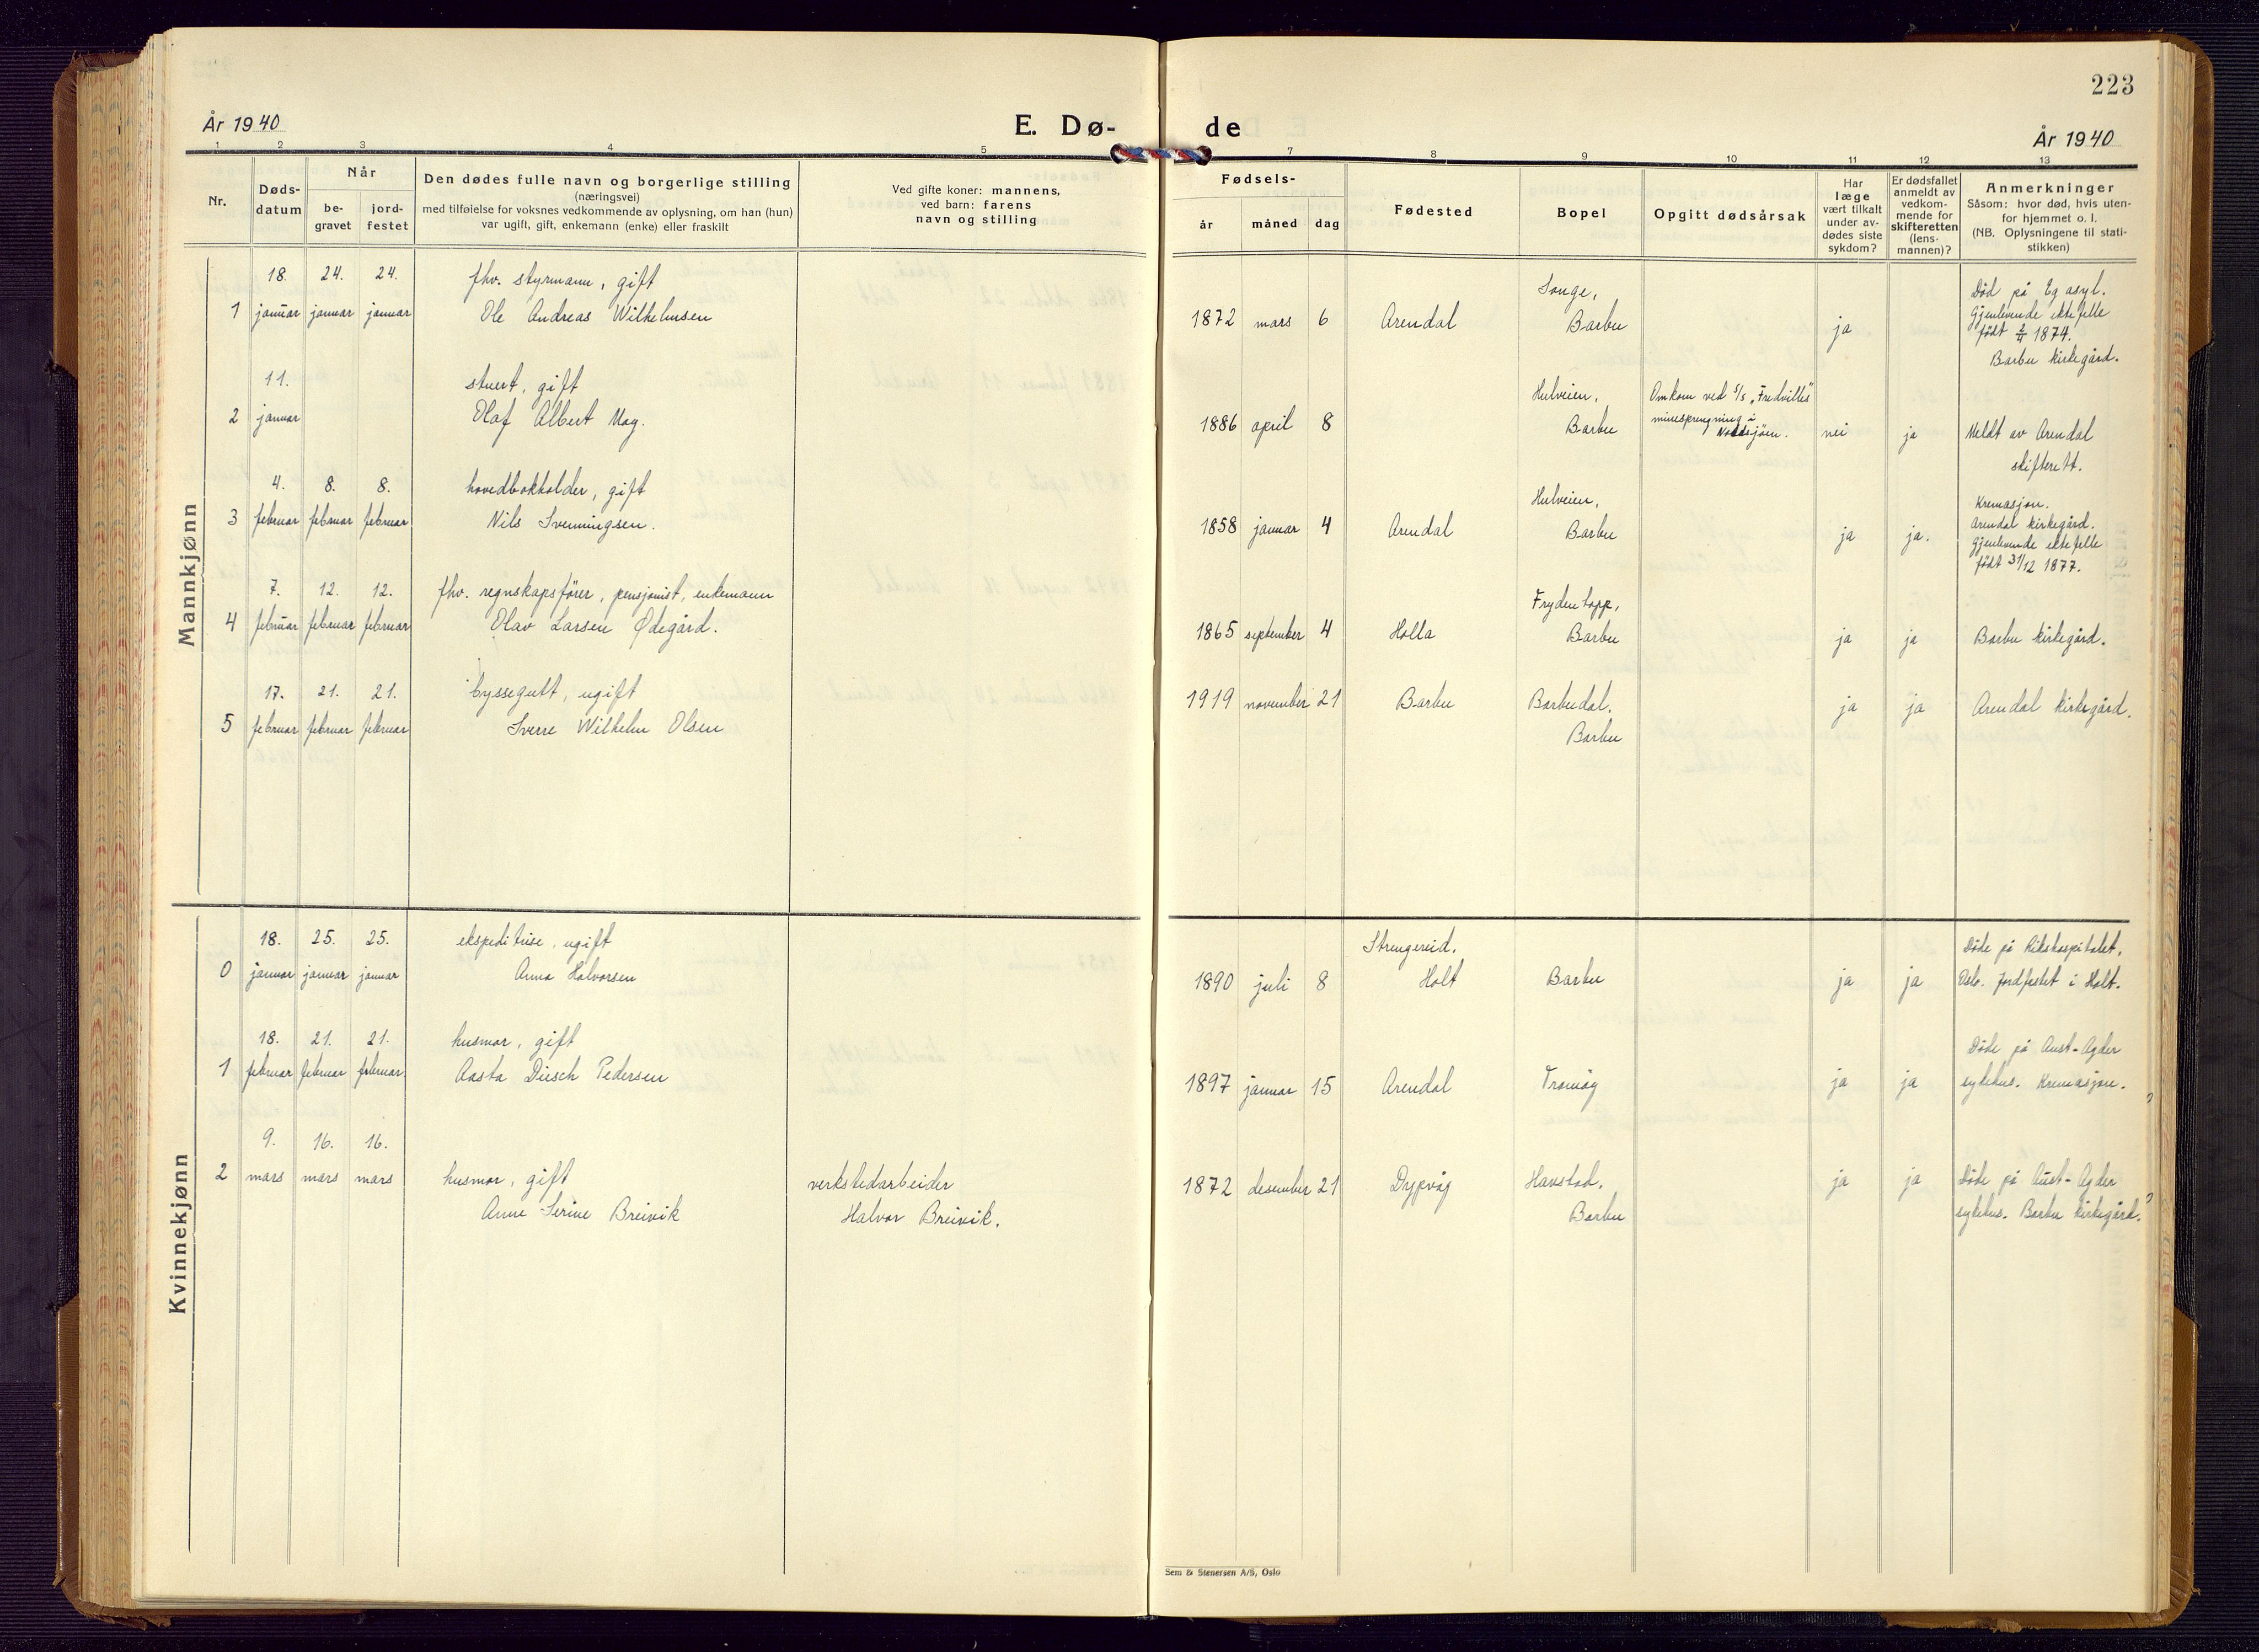 223
År 1940
E. Dø-
de
År 1940
1 2 3 4 5 7 8 9 10 11 12 13
Nr.
Døds-
datum
Når
be-
gravet
jord-
festet
Den dødes fulle navn og borgerlige stilling
(næringsvei)
med tilføielse for voksnes vedkommende av oplysning, om han (hun)
var ugift, gift, enkemann (enke) eller fraskilt
Ved gifte koner: mannens,
ved barn: farens
navn og stilling
Fødsels-
år måned dag
Fødested
Bopel
Opgitt dødsårsak
Har
læge
vært tilkalt
under av-
dødes siste
sykdom?
Er dødsfallet
anmeldt av
vedkom-
mende for
skifteretten
(lens-
mannen)?
Anmerkninger
Såsom: hvor død, hvis uten-
for hjemmet o. l.
(NB. Oplysningene til stati-
stikken)
Mannkjønn
18. 24. 24. fhv. styrmann, gift
1 januar januar januar Ole Andreas Wilhelmsen
Songe,
1872 mars 6 Arendal Barbu ja
Død på Eg asyl.
Gjenlevende ektefelle
født 2/4 1874.
Barbu kirkegård.
11. stuert, gift
2 januar Olaf Albert Uog.
Hulveien,
1886 april 8 Barbu
Omkom ved s/s "Fredvilles"
minesprengning i
Nordsjøen.
nei ja
Meldt av Arendal
skifterett.
4. 8. 8. hovedbokholder, gift
3 februar februar februar Nils Svenningsen.
Hulveien,
1858 januar 4 Arendal Barbu ja ja.
Kremasjon.
Arendal kirkegård.
Gjenlevende ektefelle
født 31/12 1877.
7. 12. 12. fhv. regnskapsfører, pensjonist, enkemann
4 februar februar februar Olav Larsen Ødegård.
Frydentopp,
1865 september 4 Holla Barbu ja ja Barbu kirkegård.
17. 21. 21. byssegutt, ugift
5 februar februar februar Sverre Wilhelm Olsen
1919 november 21 Barbu Barbudal, ja ja Arendal kirkegård.
Barbu
Kvinnekjønn
18. 25. 25. ekspeditrise, ugift
0 januar januar januar Anna Halvorsen
Strengereid,
1890 juli 8 Holt Barbu ja ja
Døde på Rikshospitalet,
Oslo. Jordfestet i Holt.
18. 21. 21. husmor, gift
1 februar februar februar Aasta Diesch Pedersen
1897 januar 15 Arendal Tromøy ja ja
Døde på Aust-Agder
sykehus. Kremasjon.
9. 16. 16.
2 mars mars mars husmor, gift verkstedarbeider
Anne Serine Breivik Halvor Breivik.
1872 desember 21 Dypvåg Havstad, ja ja
Barbu
Døde på Aust-Agder
sykehus. Barbu kirkegård.
Sem & Stenersen A/S, Oslo